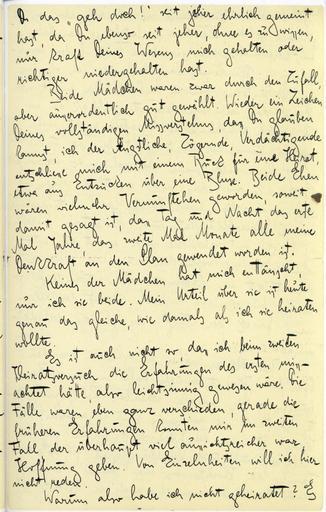 Du das „geh doch!" seit jeher ehrlich gemeint
hast, da Du ebenso seit jeher, ohne es zu wissen,
nur kraft Deines Wesens mich gehalten oder
richtiger niedergehalten hast.
Beide Mädchen waren zwar durch den Zufall
aber ausserordentlich gut gewählt. Wieder ein Zeichen
Deines vollständigen Missverstehns, das Du glauben
kannst, ich der Ängstliche, Zögernde, Verdächtigende
entschliesse mich mit einem Ruck für eine Heirat,
etwa aus Entzücken über eine Bluse. Beide Ehen
wären vielmehr Vernunftehen geworden, soweit
damit gesagt ist, das Tag und Nacht das erste
Mal Jahre, das zweite Mal Monate alle meine
Denkkraft an den Plan gewendet worden ist.
Keines der Mädchen hat mich enttäuscht,
nur ich sie beide. Mein Urteil über sie ist heute
genau das gleiche, wie damals als ich sie heiraten
wollte.
Es ist auch nicht so, das ich beim zweiten
Heiratsversuch die Erfahrungen des ersten miss-
achtet hätte, also leichtsinnig gewesen wäre. Die
Fälle waren eben ganz verschieden, gerade die
früheren Erfahrungen konnten mir im zweiten
Fall der überhaupt viel aussichtreicher war
Hoffnung geben. Von Einzelnheiten will ich hier
nicht reden.
Warum also habe ich nicht geheiratet? Es